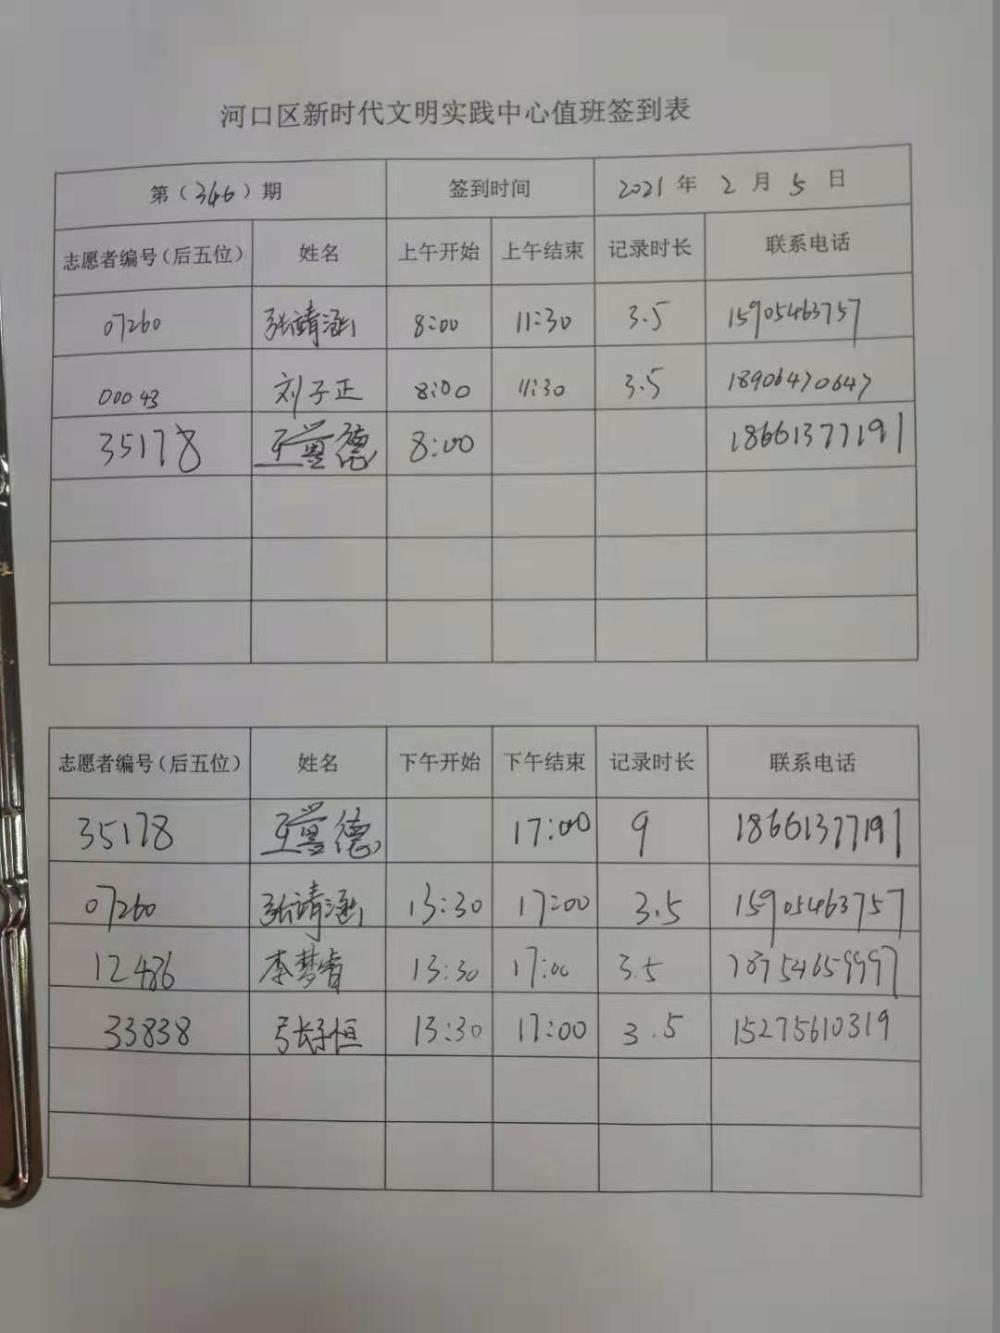 河口区新时代文明实践中心值班签到表
第（346）期 签到时间 2021 年 2 月 5 日
志愿者编号（后五位） 姓名 上午开始 上午结束 记录时长 联系电话
07260 张靖涵 8:00 11:30 3.5 15905463757
00043 刘子正 8:00 11:30 3.5 18906470647
35178 8:00 18661377191
志愿者编号（后五位） 姓名 下午开始 下午结束 记录时长 联系电话
35178 17:00 9 18661377191
07260 张靖涵 13:30 17:00 3.5 15905463757
12486 李梦睿 13:30 17:00 3.5
33838 张子恒 13:30 17:00 3.5 15275610319